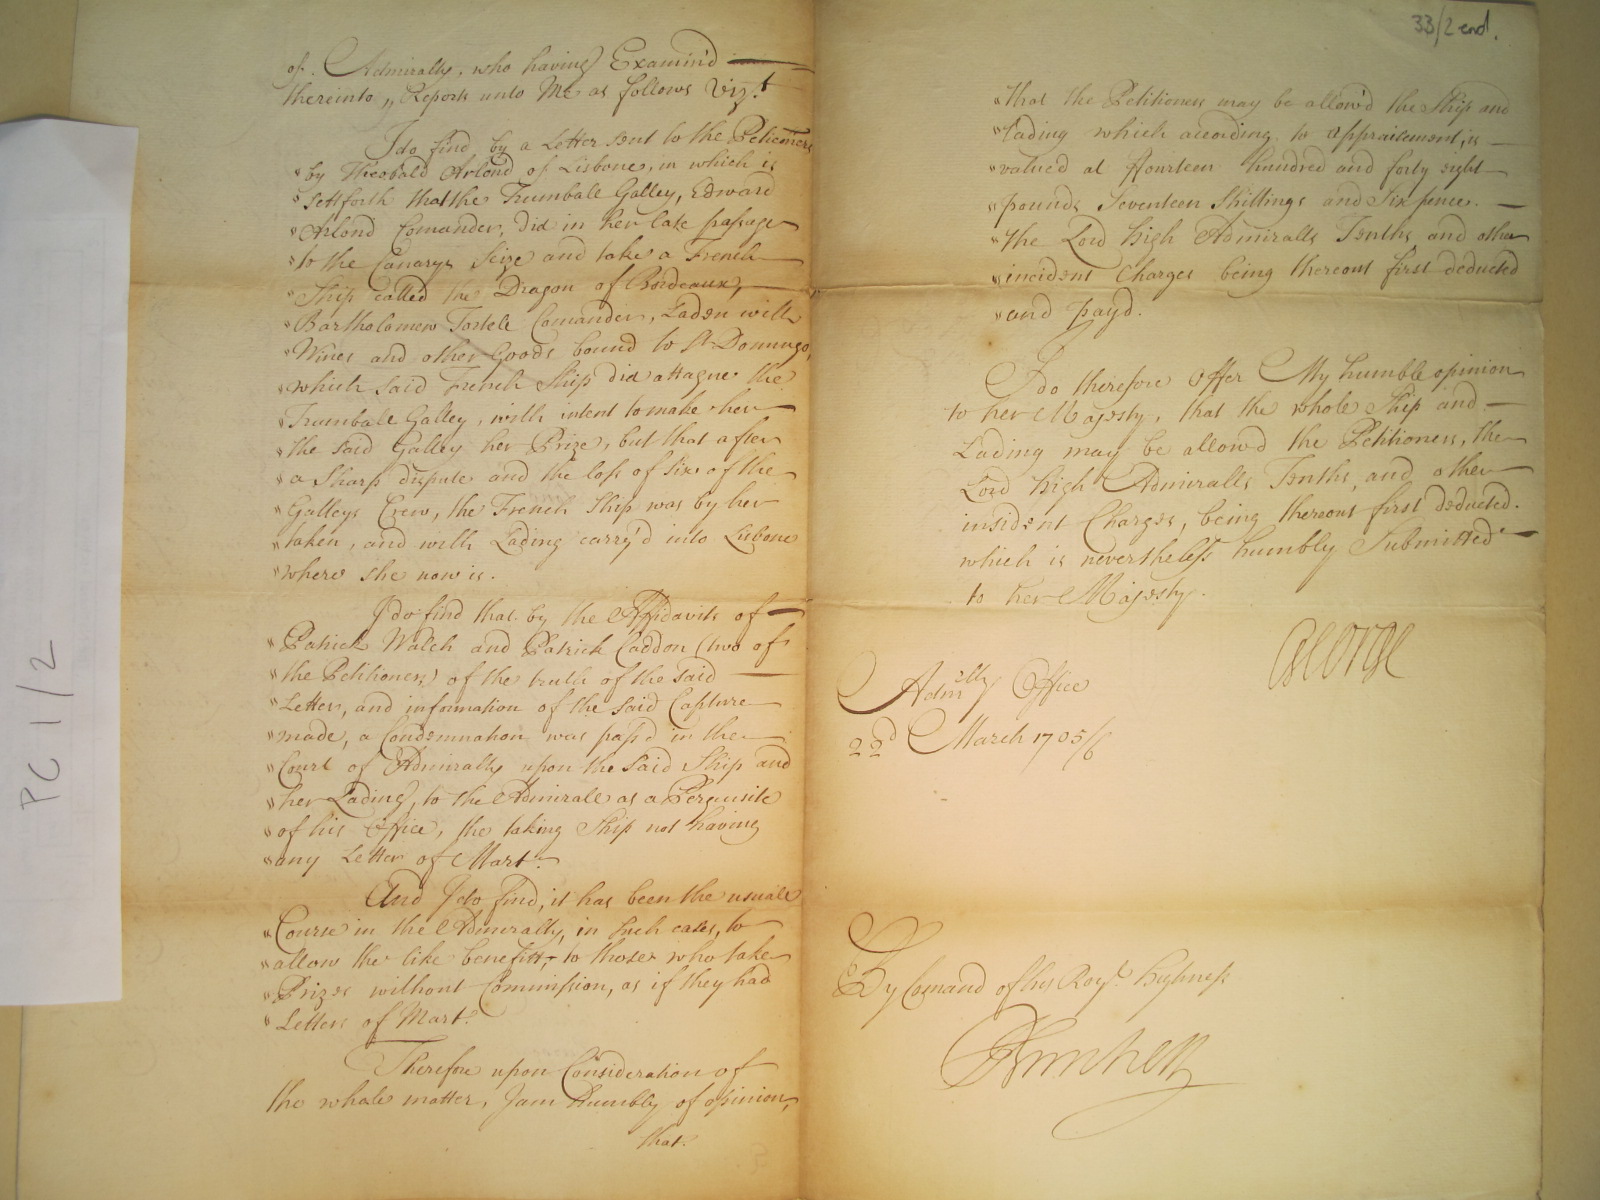 of. Admiralty, who having Examin'd
thereinto, Reports unto Me as follows Vizt
I do find by a Letter sent to the Petitioners
"by Theobald Arlond of Lisbone, in which is
"settforth that the Trumball Galley, Edward
"Arlond Comander, did in her late passage
"to the Canarys Seize and take a French
"Ship called the Dragon of Bordeaux,
"Bartholomew Tostele Comander, Laden with
"Wines and other Goods bound to St. Domingo,
"which said French Ship did attaque the
"Trumball Galley, with intent to make her
"the said Galley her Prize, but that after
"a Sharp dispute and the loss of Six of the
"Galleys Crew, the French Ship was by her
"taken, and with Lading carry'd into Lisbone
"where she now is.
I do find that by the Affidavits of
"Patrick Walch and Patrick Caddon (two of
"the Petitioners) of the truth of the said
"Letter, and information of the said Capture
"made, a Condemnation was pass'd in the
"Court of Admiralty upon the said Ship and
"her Lading, to the Admirall as a Perquisite
"of his Office, the taking Ship not having
"any Letter of Mart.
And I do find, it has been the usuall
"Course in the Admiralty, in such cases, to
"allow the like benefitt, to those who take
"Prizes without Commission, as if they had
"Letters of Mart.
Therefore upon Consideration of
the whole matter, I am Humbly of opinion,
that
33/2 end.
"that the Petitioners may be allow'd the Ship and
"Lading which according to appraisement, is
"valued at ffourteen hundred and forty eight
"pounds Seventeen Shillings and Six pence.
"the Lord High Admiralls Tenths and other
"incident Charges being thereout first deducted
"and pay'd.
I do therefore Offer My humble opinion
to her Majesty, that the whole Ship and
Lading may be allow'd the Petitioners, the
Lord High Admiralls Tenths, and other
insident Charges, being thereout first deducted.
which is nevertheless humbly Submitted
to her Majesty.
George
Admlty Office
22d March 1705/6
By Comand of his Royl. Highness
PC 1/2